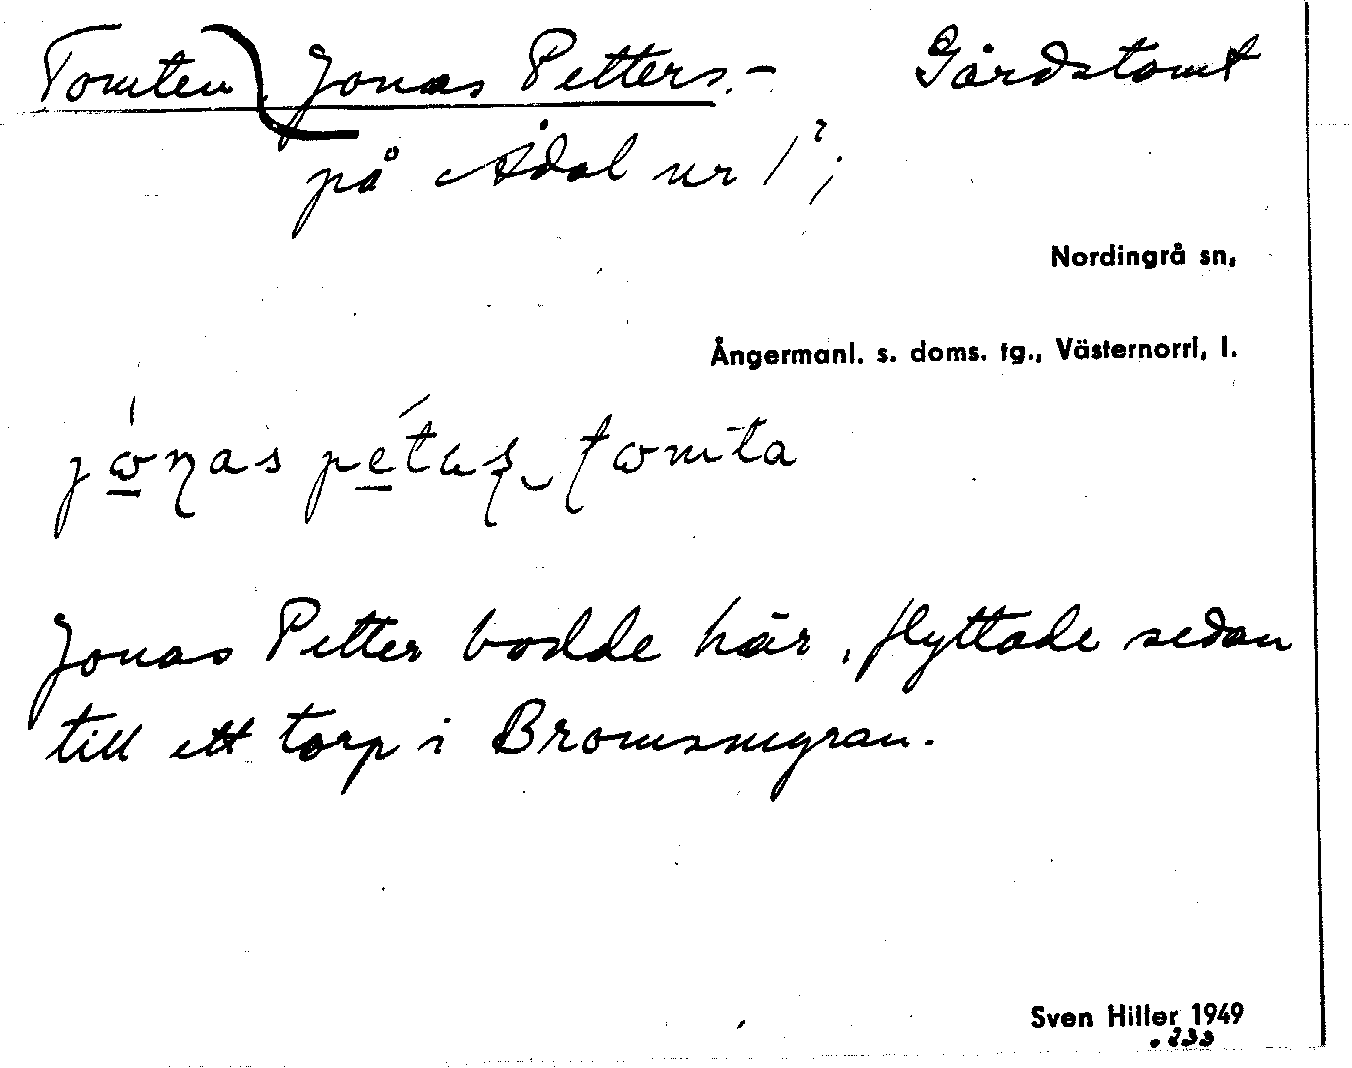 Tomten, Jonas Petters.- Gårdstomt
på Ådal nr 1?;
Nordingrå sn,
Ångermanl. s. doms. tg., Västernorrl, l.
Jonas Petter bodde här, flyttade sedan
till ett torp i Bromsmyran.
Sven Hiller 1949